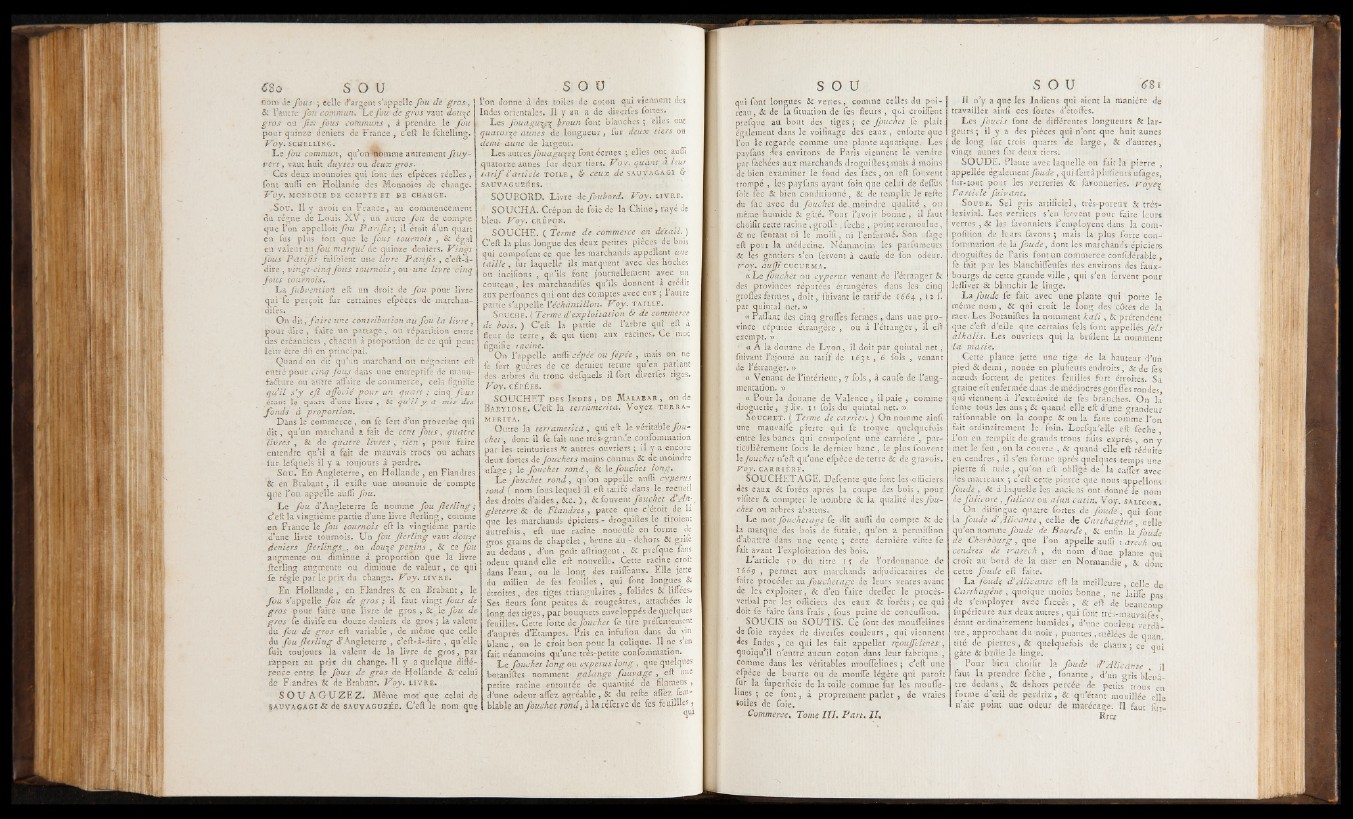 680 S O U
nom de sous ; celle d'argent s'appelle sou de gros,
& l'autre sou commun. Le sou de gros vaut douze
gros ou six sous communs , à prendre le sou
pour quinze deniers de France, c'est le schelling.
Voy. SCHELLING.
Le sou commun, qu'on nomme autrement stuy-
vers, vaut huit duytes ou deux gros.
Ces deux monnoies qui sont des espèces réelles ,
sont aussi en Hollande des Monnoies de change.
Voy. MONNOIE DE COMPTE ET DE CHANGE.
Sou. Il y avoit en France, au commencement
du règne de Louis XV, un autre sou de compte
que l'on appelloit sou Parisis ; il étoit d'un quart
en sus plus fort que le sou tournois , & égal
en valeur au sou marqué de quinze deniers. Vingt
sous Parisis faisoient une livre Parisis, c'est-à-
dire , vingt-cinq sous tournois, ou une livre cinq
sous tournois.
La subvention est un droit de sou pour livre
qui se perçoit sur certaines espèces de marchan-
dises.
On dit, faire une contribution au sou la livre,
pour dire , faire un partage, ou répartition entre
des créanciers, chacun à proportion de ce qui peut
leur être dû en principal.
Quand on dit qu'un marchand ou négociant est
entré pour cinq sous dans une entreprise de manu-
facture ou autre affaire de commerce, cela signifie
qu'il s'y est associé pour un quart ; cinq sous
étant le quart d'une livre , & qu'il y a mis des
fonds à proportion.
Dans le commerce, on se sert d'un proverbe qui
dit, qu'un marchand a fait de cent sous, quatre
livres , & de quatre livres , rien , pour faire
entendre qu'il a fait de mauvais trocs ou achats
sur lesquels il y a toujours à perdre.
Sou. En Angleterre, en Hollande, en Flandres
& en Brabant, il existe une monnoie de compte
que l'on appelle aussi sou.
Le sou d'Angleterre se nomme sou sterling ;
c'est la vingtième partie d'une livre sterling, comme
en France le sou tournois est la vingtième partie
d'une livre tournois. Un sou sterling vaut douze
deniers sterlings, ou douze penins , & ce sou
augmente ou diminue à proportion que la livre
sterling augmente ou diminue de valeur, ce qui
se régle par le prix du change. Voy. LIVRE.
En Hollande , en Flandres & en Brabant, le
sou s'appelle sou de gros ; il faut vingt sous de
gros pour faire une livre de gros , & le sou de
gros se divise en douze deniers de gros ; la valeur
du sou de gros est variable , de même que celle
du sou sterling d'Angleterre , c'est-à-dire, qu'elle
suit toujours la valeur de la livre de gros, par
rapport au prix du change. Il y a quelque diffé-
rence entre le sous de gros de Hollande & celui
de Flandres & de Brabant. Voy. LIVRE.
SOUAGUZEZ. Même mot que celui de
SAUVAGAGI & de SAUVAGUZÉE. C'est le nom que
S O U
l'on donne à des toiles de coton qui viennent des
Indes orientales. Il y en a de diverses sortes.
Les souaguzez broun sont blanches ; elles ont
quatorze aunes de longueur, sur deux tiers ou
demi aune de largeur.
Les autres souaguzez sont écrues ; elles ont aussi
quatorze aunes sur deux tiers. Voy. quant à leur
tarif l'article TOILE, & ceux de SAUVAGAGI &
SAUVAGUZÉES.
SOUBORD. Livre de soubord. Voy. LIVRE.
SOUCHA. Crépon de soie de la Chine, rayé de
bleu. Voy. CRÉPON.
SOUCHE. ( Terme de commerce en détail. )
C'est la plus longue des deux petites pièces de bois
qui composent ce que les marchands appellent une
taille, sur laquelle ils marquent avec des hoches
ou incisions , qu'ils font journellement avec un
couteau, les marchandises qu'ils donnent à crédit
aux personnes qui ont des comptes avec eux ; l'autre
partie s'appelle l'échantillon. Voy. TAILLE.
SOUCHE. ( Terme d'exploitation & de commerce
de bois. ) C'est la partie de l'arbre qui est à
fleur de terre, & qui tient aux racines. Ce mot
signifie racine.
On l'appelle aussi cépée ou sepée , mais on ne
se sert guères de ce dernier terme qu'en parlant
des arbres du tronc desquels il sort diverses tiges.
Voy. CÉPÉES.
SOUCHET DES INDES, DE MALABAR, OU DE
BABYLONE. C'est la terramerita. Voyez TERRA-
MERITA.
Outre la terramerita , qui est le véritable sou-
chet, dont il se fait une très-grande consommation
par les teinturiers & autres ouvriers ; il y a encore
deux sortes de souchets moins connus & de moindre
usage ; le souchet rond, & le souchet long.
Le souchet rond, qu'on appelle aussi cyperus
rond ( nom sous lequel il est tarifé dans le recueil
des droits d'aides, &c. ), & souvent souchet d'An-
gleterre & de Flandres , parce que c'étoit de là
que les marchands épiciers-droguistes le tiroient
autrefois, est une racine noueuse en forme de
gros grains de chapelet, brune au-dehors & grise
au dedans , d'un goût astringent, & presque sans
odeur quand elle est nouvelle. Cette racine croît
dans l'eau, ou le long des ruisseaux. Elle jette
du milieu de ses feuilles , qui sont longues &
étroites, des tiges triangulaires, solides & lissées.
Ses fleurs sont petites & rougeâtres, attachées le
long des tiges, par bouquets enveloppés de quelques
feuilles. Cette sorte de souchet se tire présentement
d'auprès d'Etampes. Pris en infusion dans du vin
blanc , on le croit bon pour la colique. Il ne s'en
fait néanmoins qu'une très-petite consommation.
Le souchet long ou cyperus long, que quelques
botanistes nomment galange sauvage , est une
petite racine entourée de quantité de filamens,
d'une odeur assez agréable, & du reste assez sem-
blable au souchet rond, à la réserve de ses feuilles,
qui
S O U
qui sont longues & vertes, comme celles du poi-
reau, & de la situation de ses fleurs , qui croissent
presque au bout des tiges ; ce souchet se plaît
également dans le voisinage des eaux, ensorte que
l'on le regarde comme une plante aquatique. Les
paysans des environs de Paris viennent le vendre
par sachées aux marchands droguistes ; mais à moins
de bien examiner le fond des sacs, on est souvent
trompé , les paysans ayant soin que celui de dessus
soit sec & bien conditionné, & de remplir le reste
du sac avec du souchet de moindre qualité , ou
même humide & gâté. Pour l'avoir bonne, il faut
choisir cette racine, grosse, seche, point vermoulue,
& ne sentant ni le moisi, ni l'enfermé. Son usage
est pour la médecine. Néanmoins les parfumeurs
& les gantiers s'en servent à cause de son odeur.
Voy. aussi CUCURMA.
« Le souchet ou cyperus venant de l'étranger &
des provinces réputées étrangères dans les cinq
grosses fermes, doit, suivant le tarif de 1664, 12 s.
par quintal net. »
« Passant des cinq grosses fermes, dans une pro-
vince réputée étrangère , ou à l'étranger, il est
exempt. »
« A la douane de Lyon, il doit par quintal net,
suivant l'ajouté au tarif de 1632, 6 sols, venant
de l'étranger. »
« Venant de l'intérieur, 7 sols, à cause de l'aug-
mentation. »
« Pour la douane de Valence, il paie , comme
droguerie, 3 liv. 11 sols du quintal net. »
SOUCHET. ( Terme de carrier. ) On nomme ainsi
une mauvaise pierre qui se trouve quelquefois
entre les bancs qui composent une carrière , par-
ticulièrement sous le dernier banc, le plus souvent
le souchet n'est qu'une espèce de terre & de gravois.
Voy. CARRIÈRE.
SOUCHETAGE. Descente que font les officiers
des eaux & forêts après la coupe des bois , pour
visiter & compter le nombre & la qualité des sou-
ches ou arbres abattus.
Le mot souchetage se dit aussi du compte & de
la marque des bois de futaie, qu'on a permission
d'abattre dans une vente ; cette dernière visite se
fait avant l'exploitation des bois.
L'article 50 du titre 15 de l'ordonnance de
1669 , permet aux marchands adjudicataires de
faire procéder au souchetage de leurs ventes avant
de les exploiter, & d'en faire dresser le procès-
verbal par les officiers des eaux & forêts ; ce qui
doit se faire sans frais, sous peine de concussion.
SOUCIS ou SOUTIS. Ce sont des mousselines
de soie rayées de diverses couleurs, qui viennent
des Indes , ce qui les fait appeller mousselines,
quoiqu'il n'entre aucun coton dans leur fabrique,
comme dans les véritables mousselines ; c'est une
espèce de bourre ou de mousse légère qui paroît
sur la superficie de la toile comme sur les mousse-
lines ; ce sont, à proprement parler , de vraies
toiles de soie.
Commerce. Tome III. Part. II.
S O U 681
Il n'y a que les Indiens qui aient la manière de
travailler ainsi ces sortes d'étoffes.
Les soucis sont de différentes longueurs & lar-
geurs ; il y a des pièces qui n'ont que huit aunes
de long sur trois quarts de large, & d'autres,
vingt aunes sur deux tiers.
SOUDE. Plante avec laquelle on fait la pierre ,
appellée également soude, qui sert à plusieurs usages,
sur-tout pour les verreries & savonneries. Voyez
l'article suivant.
SOUDE. Sel gris artificiel, très-poreux & très-
lexivial. Les verriers s'en servent pour faire leurs
verres, & les savonniers l'employent dans la com-
position de leurs savons ; mais la plus forte con-
sommation de la soude, dont les marchands épiciers
droguistes de Paris font un commerce considérable ,
se fait par les blanchisseuses des environs des faux-
bourgs de cette grande ville , qui s'en servent pour
lessiver & blanchir le linge.
La soude se fait avec une plante qui porte le
même nom, & qui croît le long des côtes de la
mer. Les Botanistes la nomment kali , & prétendent
que c'est d'elle que certains sels sont appellés sels
alkalis. Les ouvriers qui la brûlent la nomment
la marie.
Cette plante jette une tige de la hauteur d'un
pied & demi, nouée en plusieurs endroits, & de ses
nœuds sortent de petites feuilles fort étroites. Sa
graine est enfermée dans de médiocres gousses rondes,
qui viennent à l'extrêmité de ses branches. On la
seme tous les ans ; & quand elle est d'une grandeur
raisonnable on la coupe & on la fane comme l'on
fait ordinairement le foin. Lorsqu'elle est seche ,
l'on en remplit de grands trous faits exprès , on y
met le feu, on la couvre , & quand elle est réduite
en cendres , il s'en forme après quelques temps une
pierre si rude, qu'on est obligé de la casser avec
des marteaux ; c'est cette pierre que nous appellons
soude , & à laquelle les anciens ont donné le nom
de salicore, salicot ou alun catin. Voy. SALICOR.
On distingue quatre sortes de soude , qui sont
la soude d'Alicante, celle de Carthagène, celle
qu'on nomme soude de Bourde , & enfin la soude
de Cherbourg, que l'on appelle aussi varech ou
cendres de varech , du nom d'une plante qui
croît au bord de la mer en Normandie, & dont
cette soude est faite.
La soude d'Alicante est la meilleure, celle de
Carthagène, quoique moins bonne , ne laisse pas
de s'employer avec succès , & est de beaucoup
supérieure aux deux autres, qui sont très-mauvaises,
étant ordinairement humides, d'une couleur verdâ-
tre, approchant du noir, puantes, mêlées de quan-
tité de pierres, & quelquefois de chaux ; ce qui
gâte & brûle le linge.
Pour bien choisir la soude d'Alicante , il
faut la prendre seche, sonante , d'un gris bleuâ-
tre dedans, & dehors percée de petits trous en
forme d'œil de perdrix, & qu'étant mouillée elle
n'ait point une odeur de marécage. Il faut sur-
Rrrr